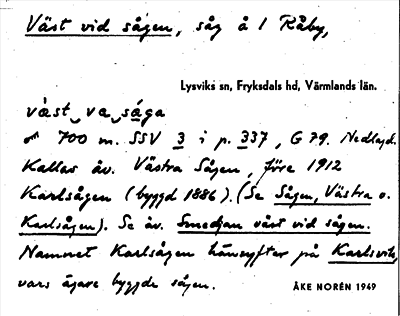 Väst vid sågen, såg å 1 Råby,
Lysviks sn, Fryksdals hd, Värmlands län.
väst va såga
700 m. SSV 3 i p. 337, G 79. Nedlagd.
Kallas äv. Västra Sågen, före 1912
Karlsågen (byggd 1886). (Se Sågen, Västra o.
Karlsågen). Se äv. Smedjan väst vid sågen.
Namnet Karlsågen hänsyftar på Karlsvik,
vars ägare byggde sågen.
ÅKE NORÉN 1949